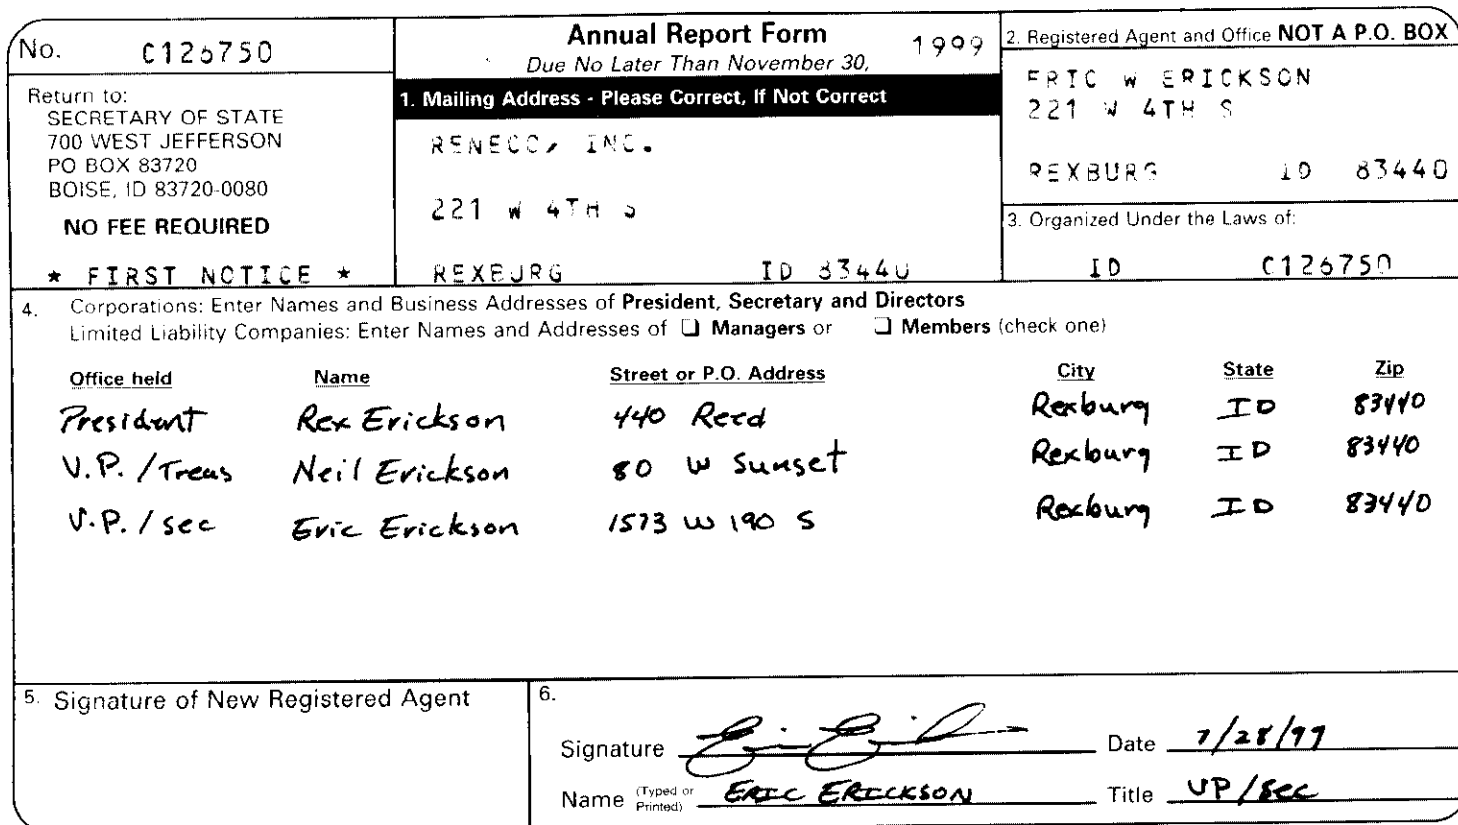 No. C126750
Annual Report Form 1999
Due No Later Than November 30,
Return to:
SECRETARY OF STATE
700 WEST JEFFERSON
PO BOX 83720
BOISE, ID 83720-0080
NO FEE REQUIRED
* FIRST NOTICE *
1. Mailing Address - Please Correct, If Not Correct
RENECO, INC.
221 W 4TH S
REXBURG ID 83440
2. Registered Agent and Office NOT A P.O. BOX
ERIC W ERICKSON
221 W 4TH S
REXBURG ID 83440
3. Organized Under the Laws of:
ID C126750
4. Corporations: Enter Names and Business Addresses of President, Secretary and Directors
Limited Liability Companies: Enter Names and Addresses of ❑ Managers or ❑ Members (check one)
Office held Name Street or P.O. Address City State Zip
President Rex Erickson 440 Reed Rexburg ID 83440
V.P. / Treas Neil Erickson 80 W Sunset Rexburg ID 83440
V.P. / sec Eric Erickson 1573 W 190 S Rexburg ID 83440
5. Signature of New Registered Agent
6.
Signature Date 7/28/99
Name (Typed or Printed) ERIC ERICKSON Title VP/Sec